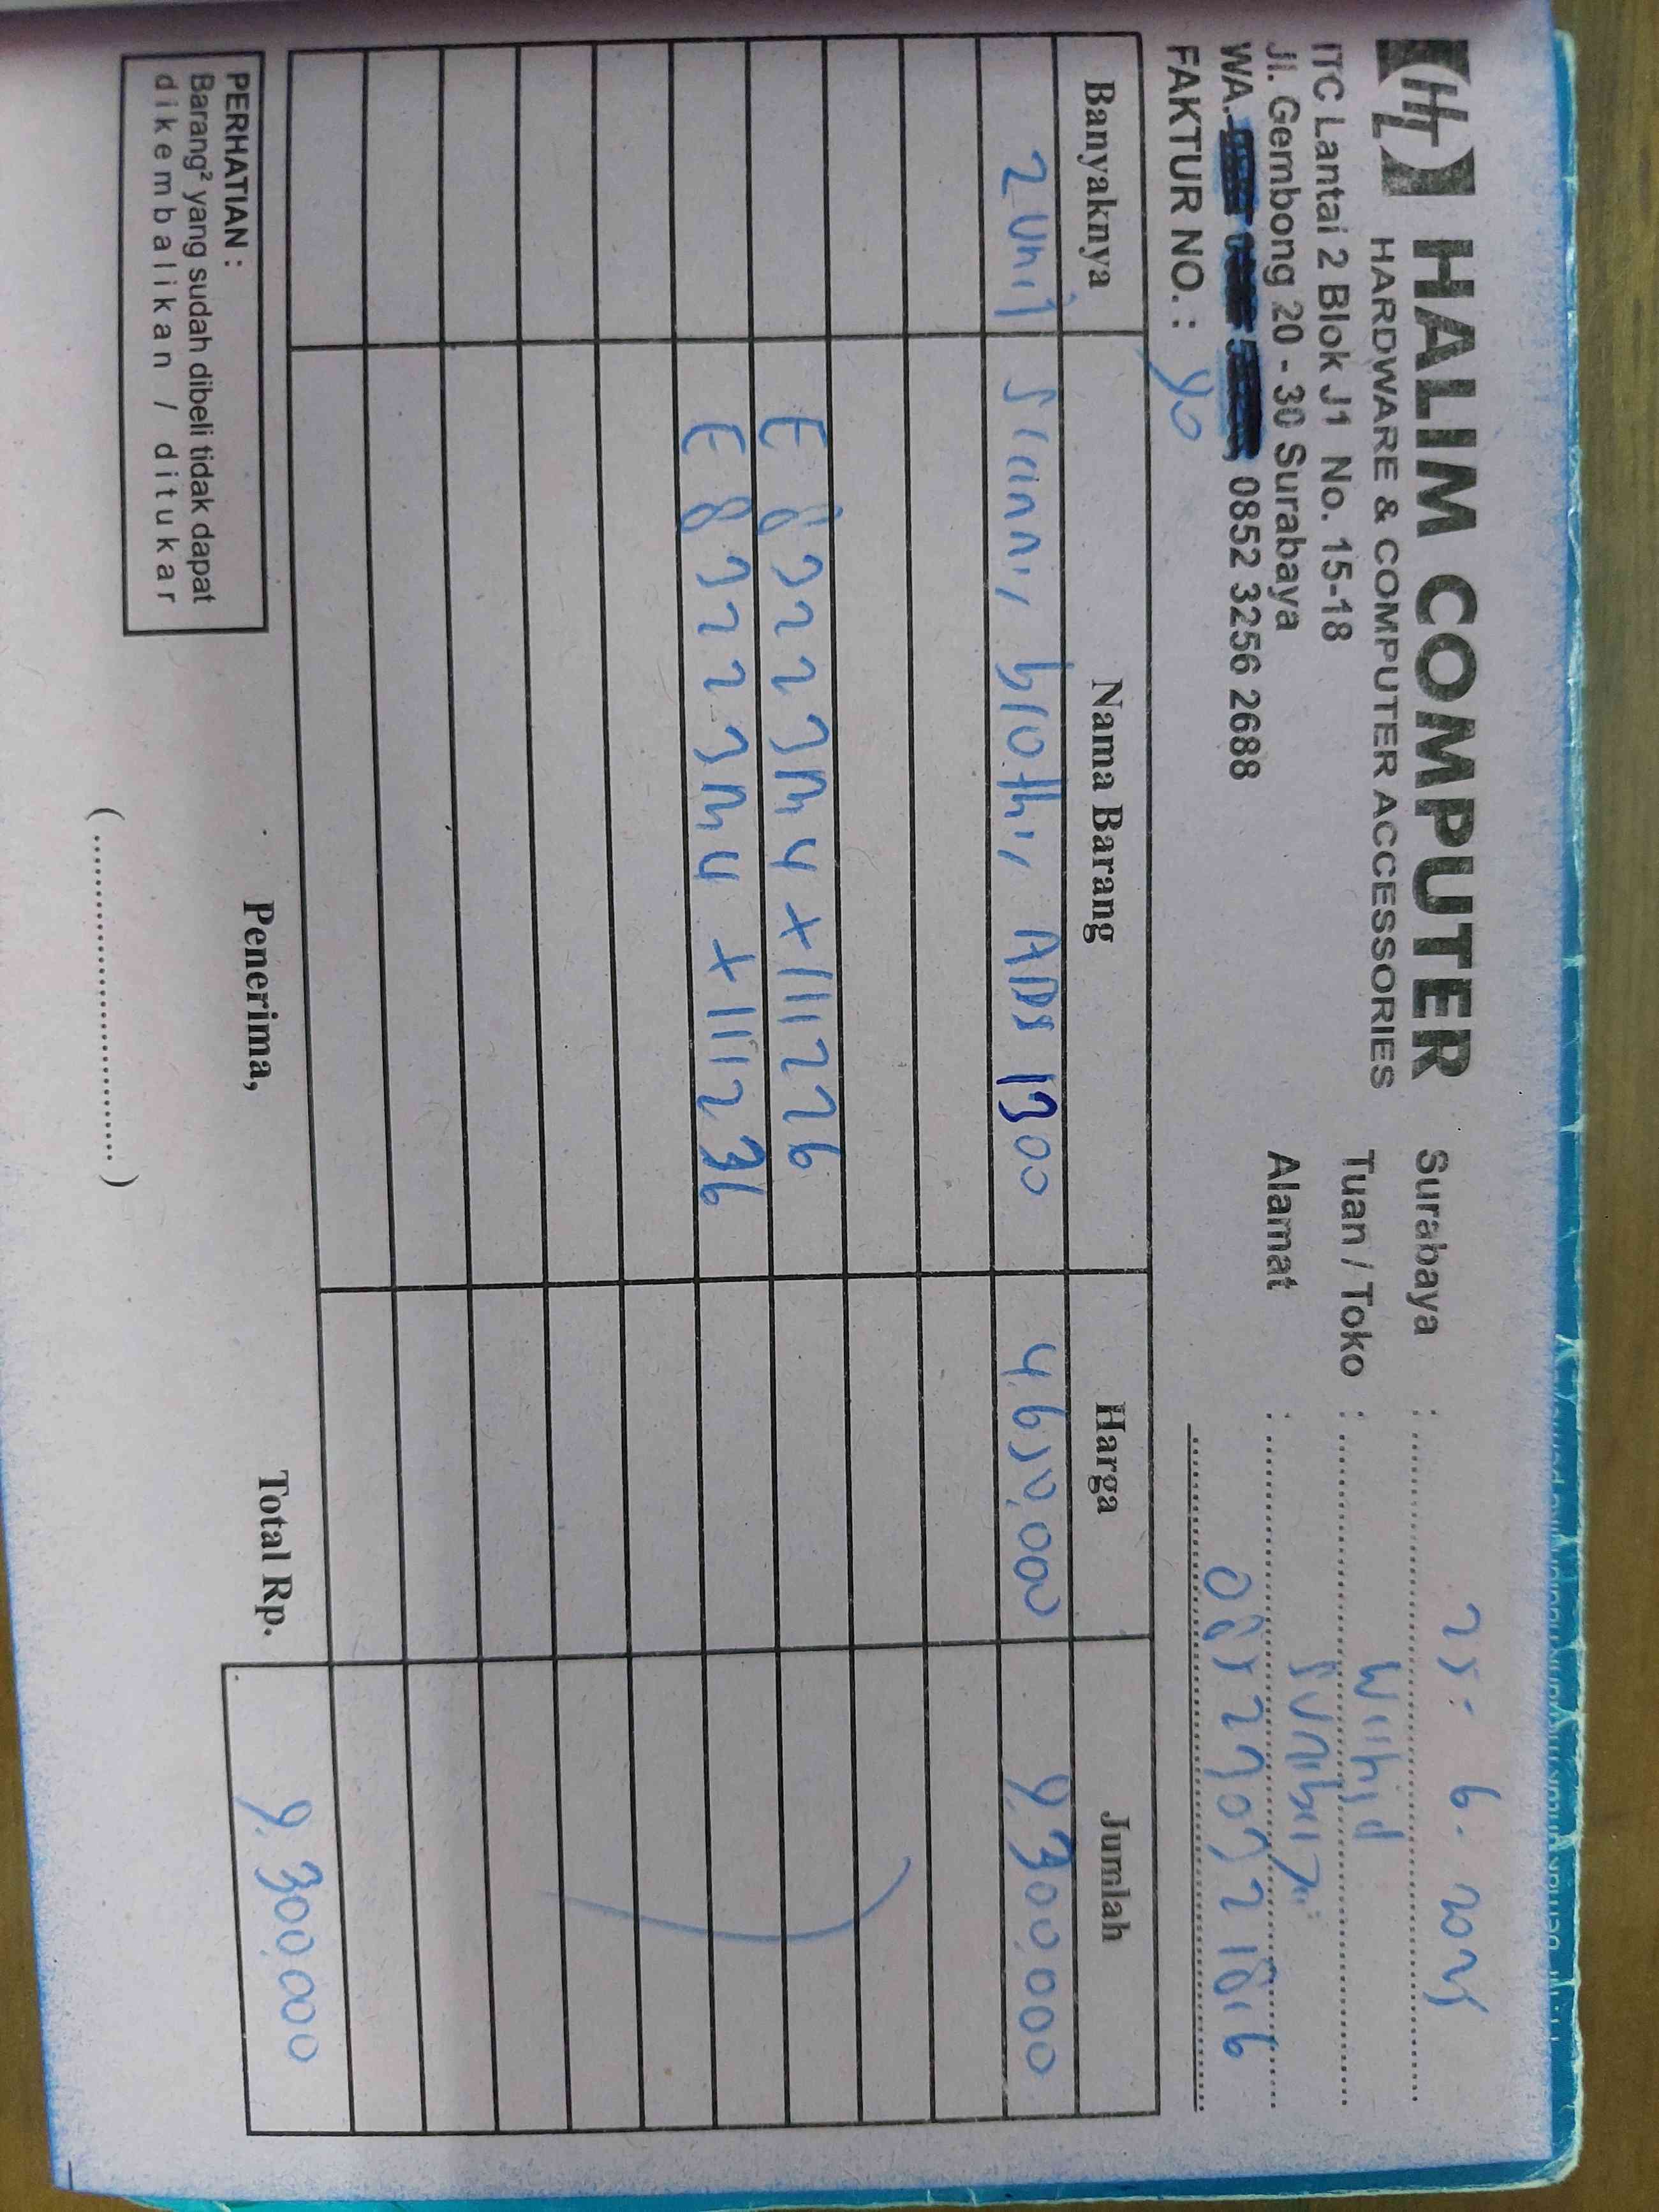 HL HALIM COMPUTER
HARDWARE & COMPUTER ACCESSORIES
ITC Lantai 2 Blok J1 No. 15-18
Jl. Gembong 20 - 30 Surabaya
WA. 0852 3256 2688
FAKTUR NO. : 90
Surabaya : 25 - 6 - 2025
Tuan / Toko :
Alamat :
Banyaknya Nama Barang Harga Jumlah
2 unit Scanner brother ADS 1300 4.650.000 9.300.000
PERHATIAN :
Barang² yang sudah dibeli tidak dapat
dikembalikan / ditukar
Penerima,
(..............................)
Total Rp. 9.300.000